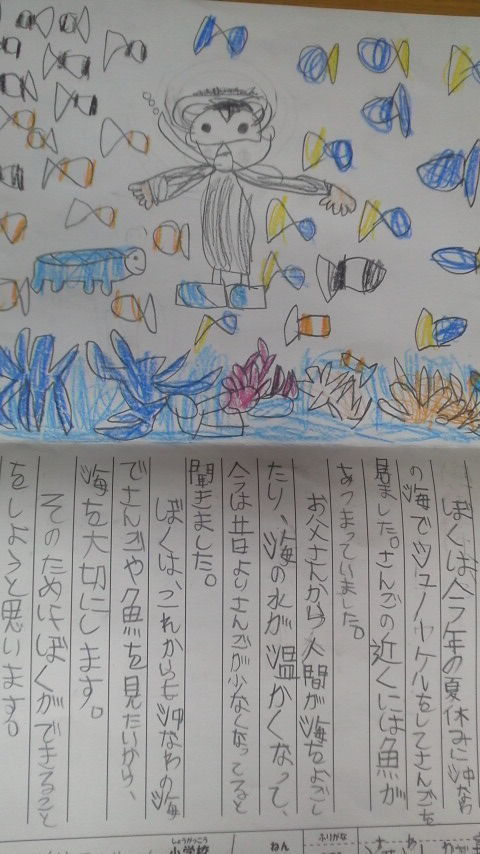 ぼくは今年の夏休みに沖なわ
の海でシュノーケルをしてさんごを
見ました。さんごの近くには魚が
あつまっていました。
お父さんから人間が海をよごし
たり、海の水が温かくなって、
今は昔よりさんごが少なくなってると
聞きました。
ぼくは、これからも沖なわの海
でさんごや魚を見たいから、
海を大切にします。
そのためにぼくができること
をしようと思います。
ふりがな
ねん
しょうがっこう
小学校